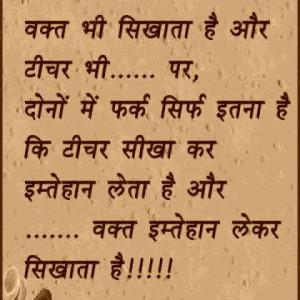 वक्त भी सिखाता है और
टीचर भी...... पर,
दोनों में फर्क सिर्फ इतना है
कि टीचर सीखा कर
इम्तेहान लेता है और
....... वक्त इम्तेहान लेकर
सिखाता है!!!!!